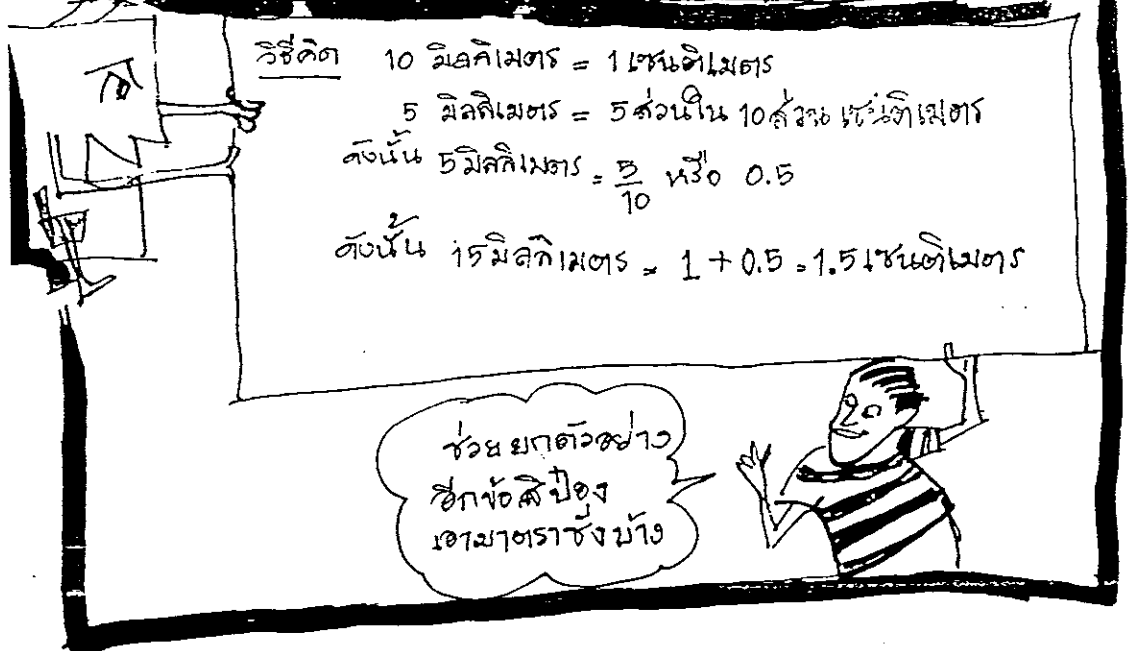 วิธีคิด 10 มิลลิเมตร = 1 เซนติเมตร
5 มิลลิเมตร = 5 ส่วนใน 10 ส่วน เซนติเมตร
ดังนั้น 5 มิลลิเมตร = 5/10 หรือ 0.5
ดังนั้น 15 มิลลิเมตร = 1 + 0.5 = 1.5 เซนติเมตร
ช่วยยกตัวอย่าง
อีกข้อสิป๋อง
เอามาตราชั่งบ้าง